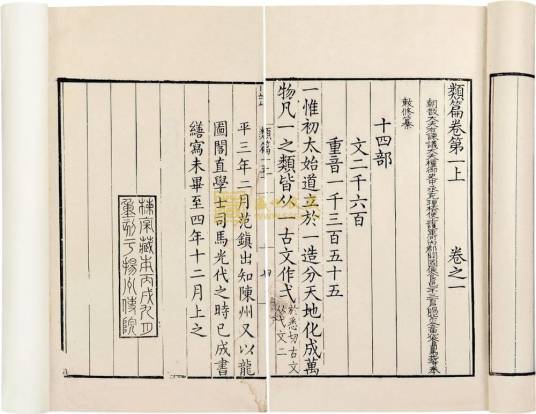 類篇卷第一上 卷之一
朝散大夫右諫議大夫權御史中丞充理檢使上護軍河內郡開國侯食邑一千三百戶賜紫金魚袋臣司馬光等奉
敕修纂
十四部
文二千六百
重音一千三百五十五
一惟初太始道立於一造分天地化成萬
物凡一之類皆从一古文作弌於悉切古文从弋文二
類篇一上
平三年二月范鎮出知陳州又以龍
圖閣直學士司馬光代之時已成書
繕寫未畢至四年十二月上之
楝亭藏本丙戌九月
重刻于揚州使院